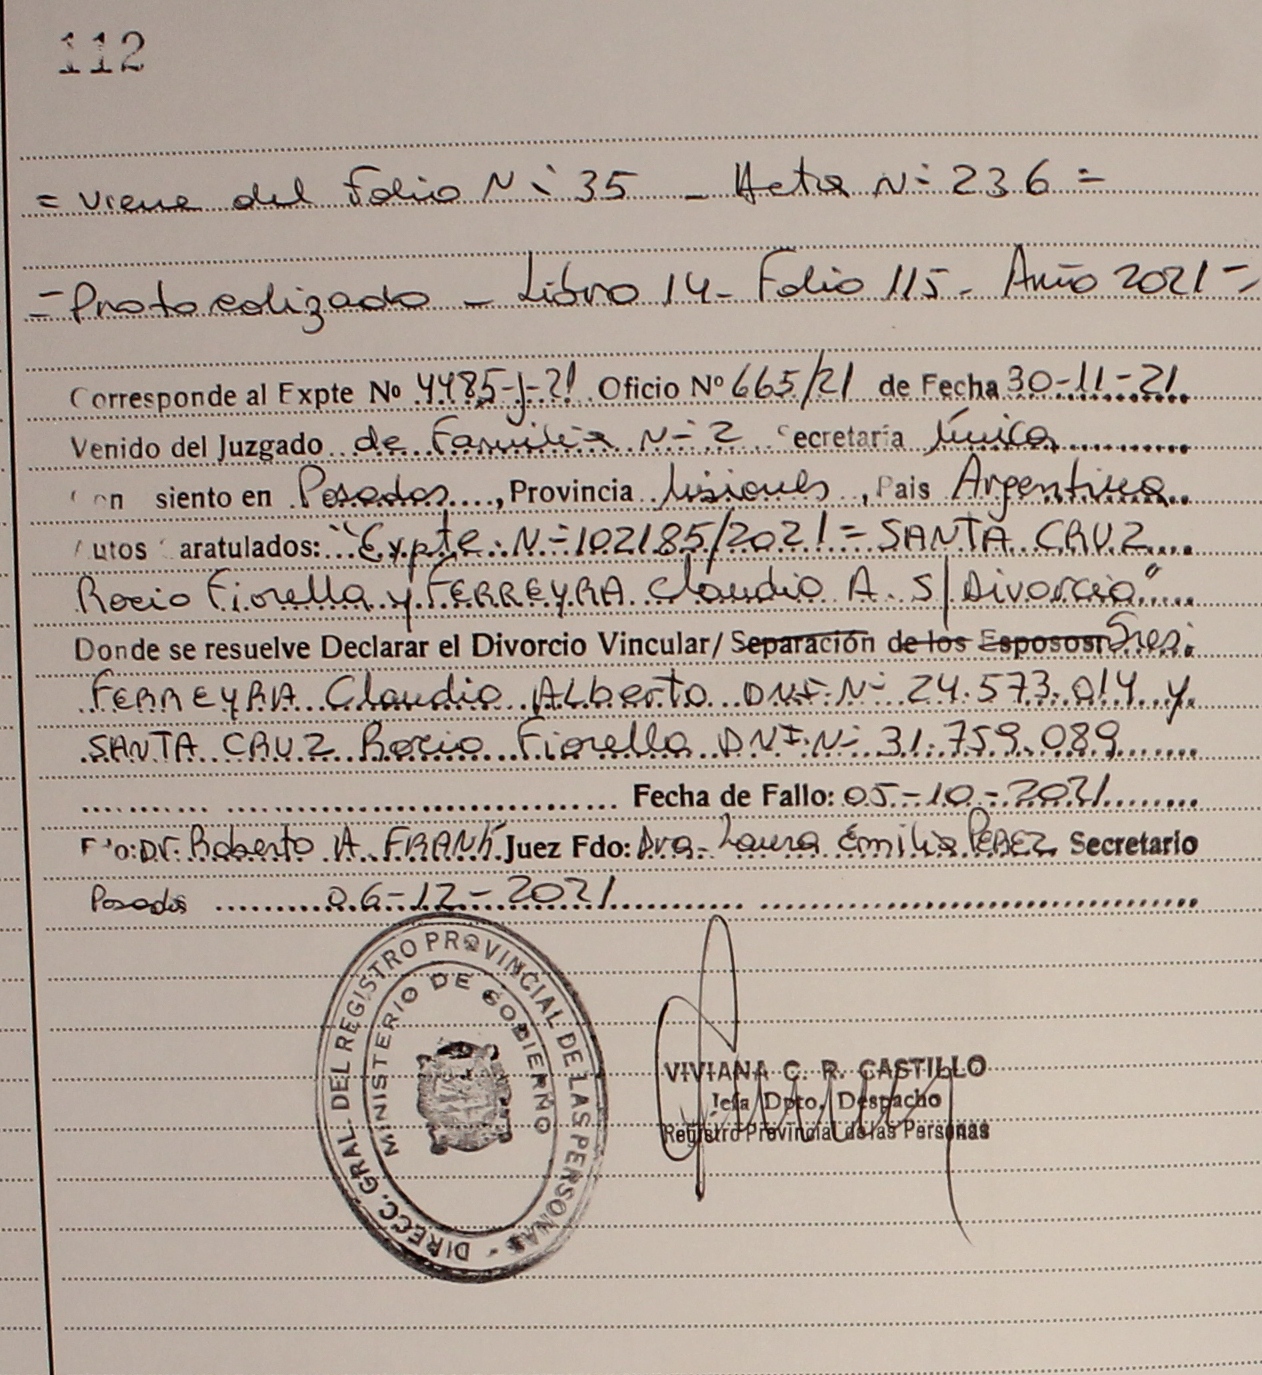 112
= viene del Folio N- 35 - Acta N- 236 =
= Protocolizado - Libro 14 - Folio 115 - Año 2021 =
Corresponde al Expte No 4485-J-21 Oficio Nº 665/21 de Fecha 30-11-21
Venido del Juzgado de Familia N- 2 Secretaría Única
Con siento en Posadas, Provincia Misiones, Pais Argentina
Autos Caratulados: "Expte. N- 102185/2021 = SANTA CRUZ
Rocio Fiorella y FERREYRA Claudio A. S/ Divorcio"
Donde se resuelve Declarar el Divorcio Vincular/ Separación de los Esposos: Sres.
FERREYRA Claudio Alberto DNI. N- 24.573.014 y
SANTA CRUZ Rocio Fiorella DNI. N- 31.759.089
Fecha de Fallo: 05-10-2021
Fdo: Dr. Roberto A. FRANK Juez Fdo: Dra. Laura Emilia PEREZ Secretario
Posadas 06-12-2021
DIRECC. GRAL. DEL REGISTRO PROVINCIAL DE LAS PERSONAS -
MINISTERIO DE GOBIERNO
VIVIANA C. R. CASTILLO
Jefa Dpto. Despacho
Registro Provincial de las Personas